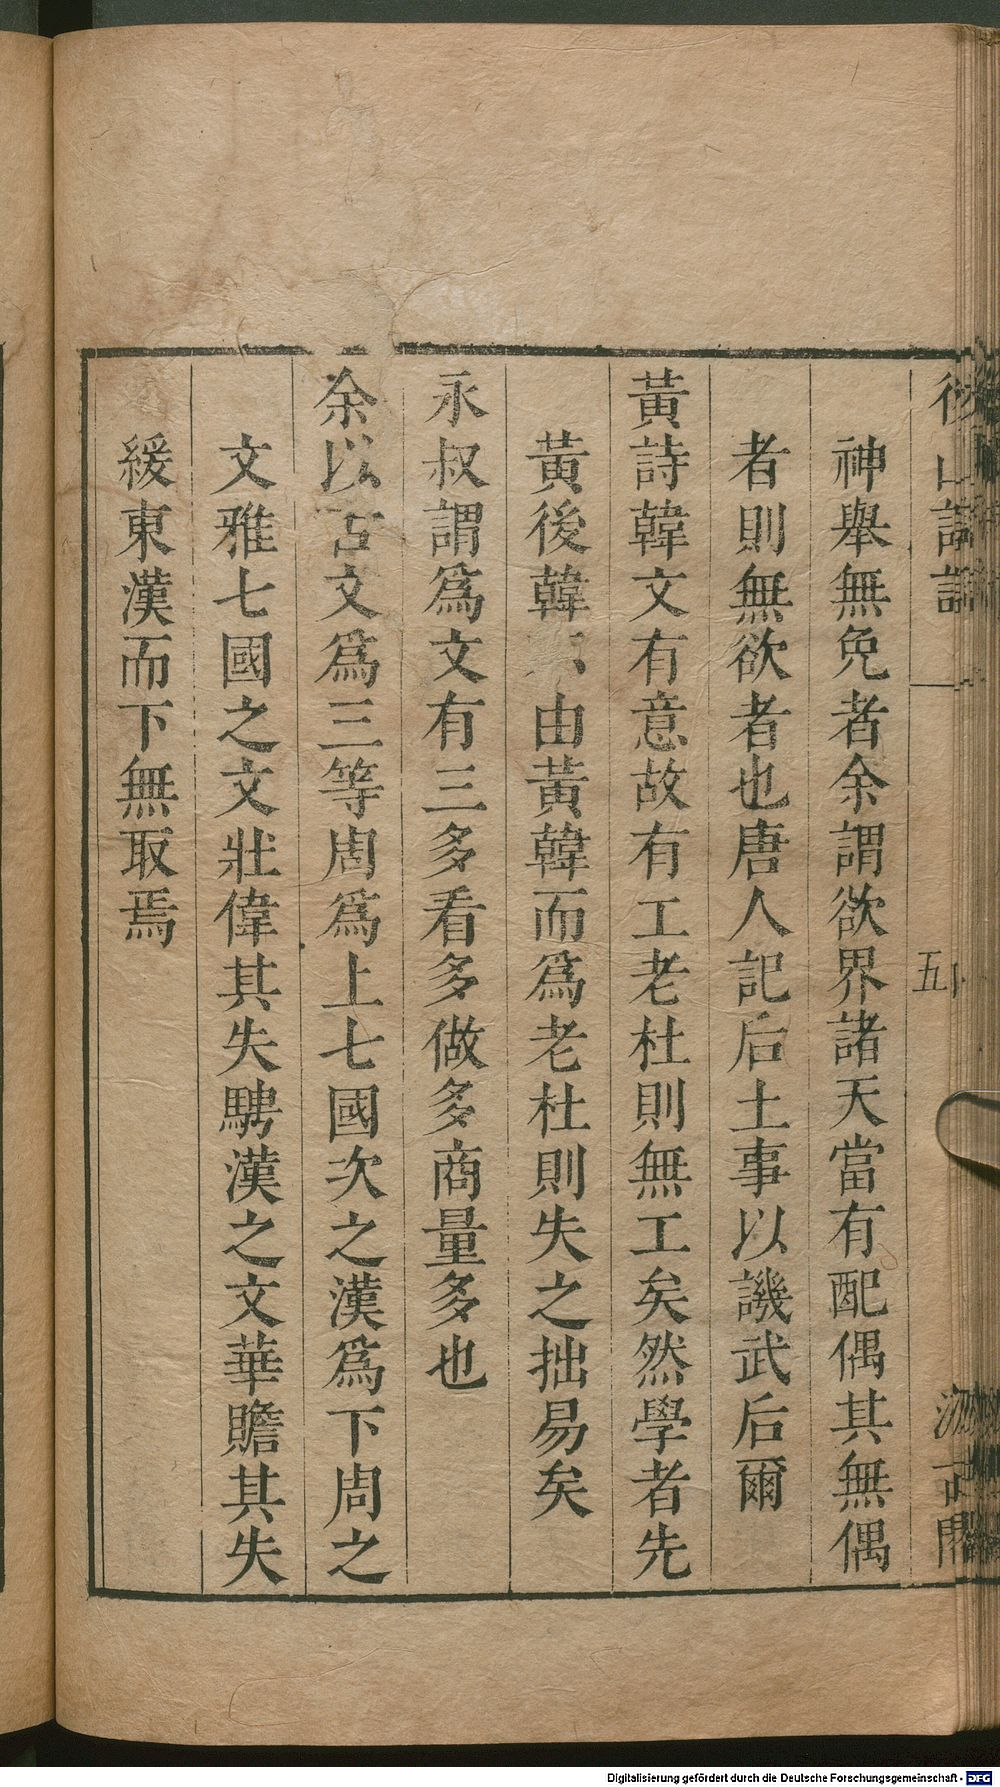 後山詩話
五
神舉無免者余謂欲界諸天當有配偶其無偶
者則無欲者也唐人記后土事以譏武后爾
黃詩韓文有意故有工老杜則無工矣然學者先
黃後韓不由黃韓而爲老杜則失之拙易矣
永叔謂爲文有三多看多做多商量多也
余以古文爲三等周爲上七國次之漢爲下周之
文雅七國之文壯偉其失騁漢之文華贍其失
緩東漢而下無取焉
Digitalisierung gefördert durch die Deutsche Forschungsgemeinschaft - DFG